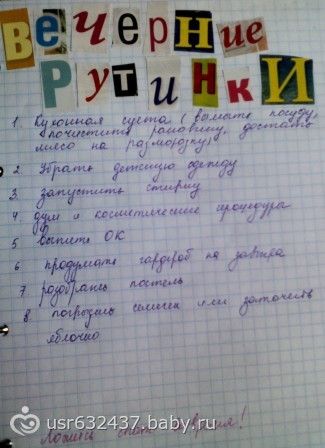 Вечерние
Рутинки
1 Кухонная суета (вымыть посуду,
почистить раковину, достать
мясо на разморозку)
2. Убрать детскую одежду
3. запустить стирку
4 душ и косметические процедуры
5 выпить ОК
6 продумать гардероб на завтра
7 разобрать постель
8 погрызть семечек или заточить
яблочко
Ложись спать вовремя!
usr632437.baby.ru